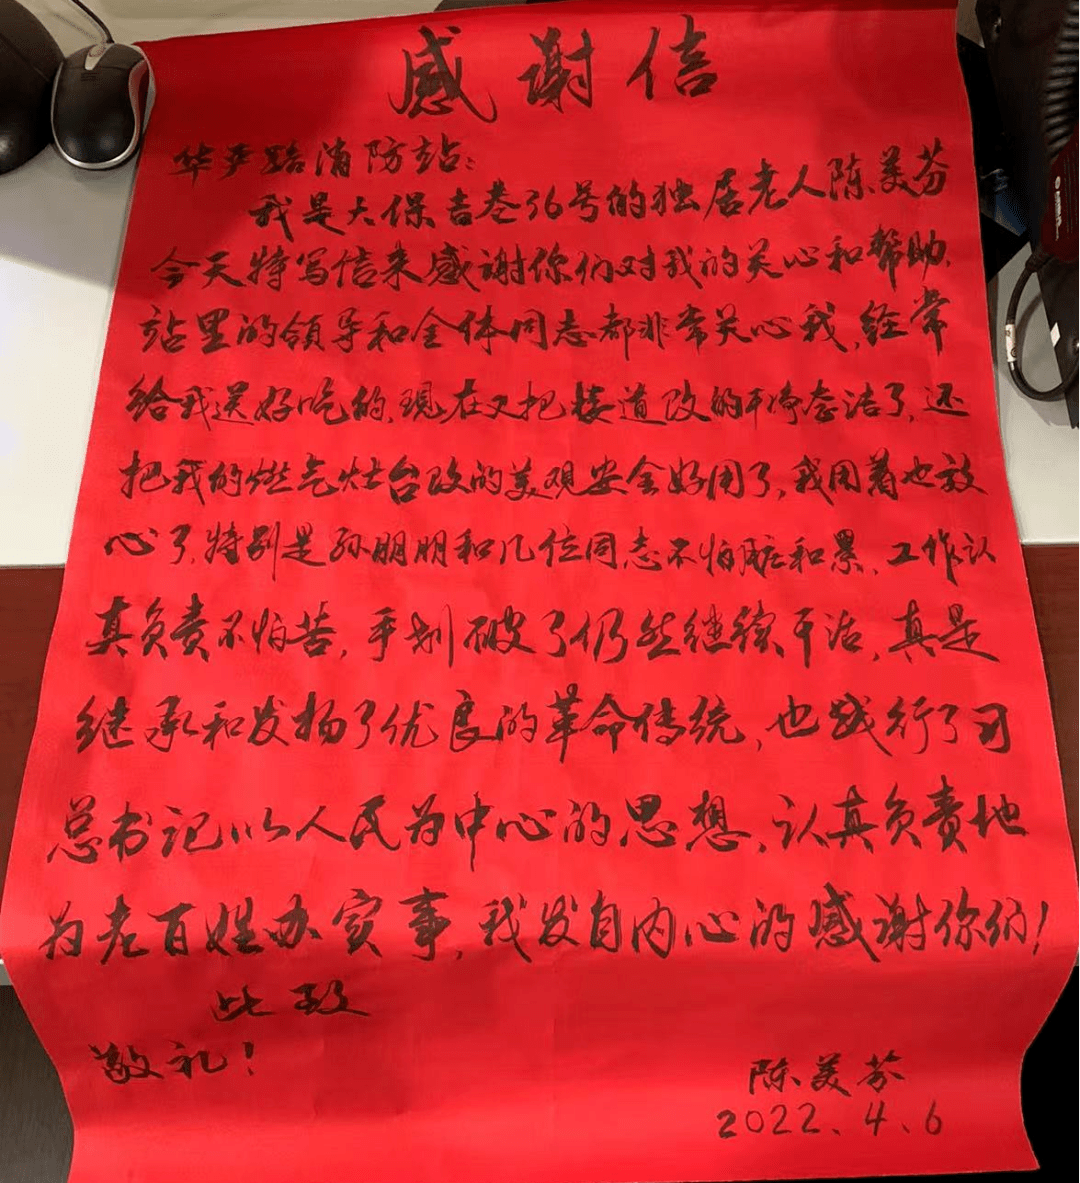 感谢信
华严路消防站：
我是大保吉巷36号的独居老人陈美芬
今天特写信来感谢你们对我的关心和帮助，
站里的领导和全体同志都非常关心我，经常
给我送好吃的，现在又把楼道改的干净整洁了，还
把我的燃气灶台改的美观安全好用了，我用着也放
心了，特别是孙朋朋和几位同志不怕脏和累，工作认
真负责不怕苦，手划破了仍然继续干活，真是
继承和发扬了优良的革命传统，也践行了习
总书记以人民为中心的思想，认真负责地
为老百姓办实事，我发自内心的感谢你们！
此致
敬礼！
陈美芬
2022.4.6